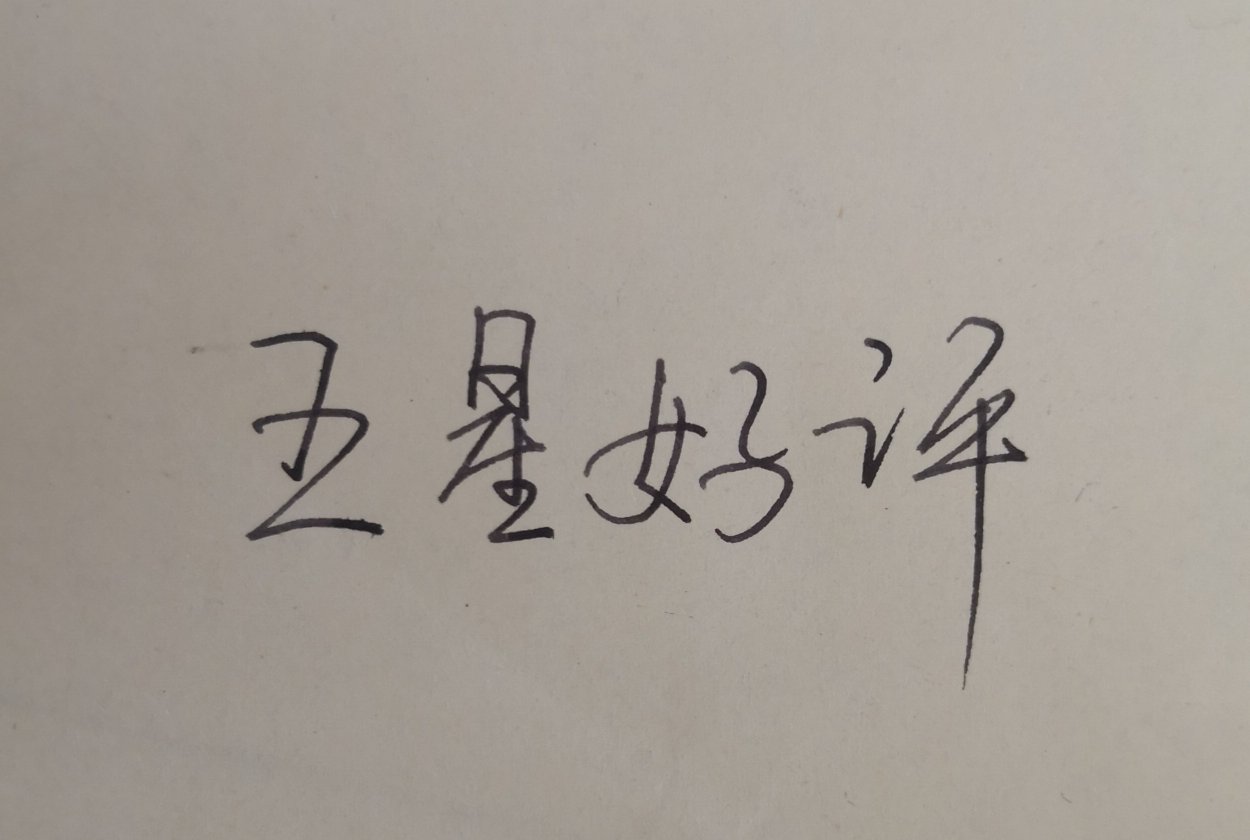 五星好评